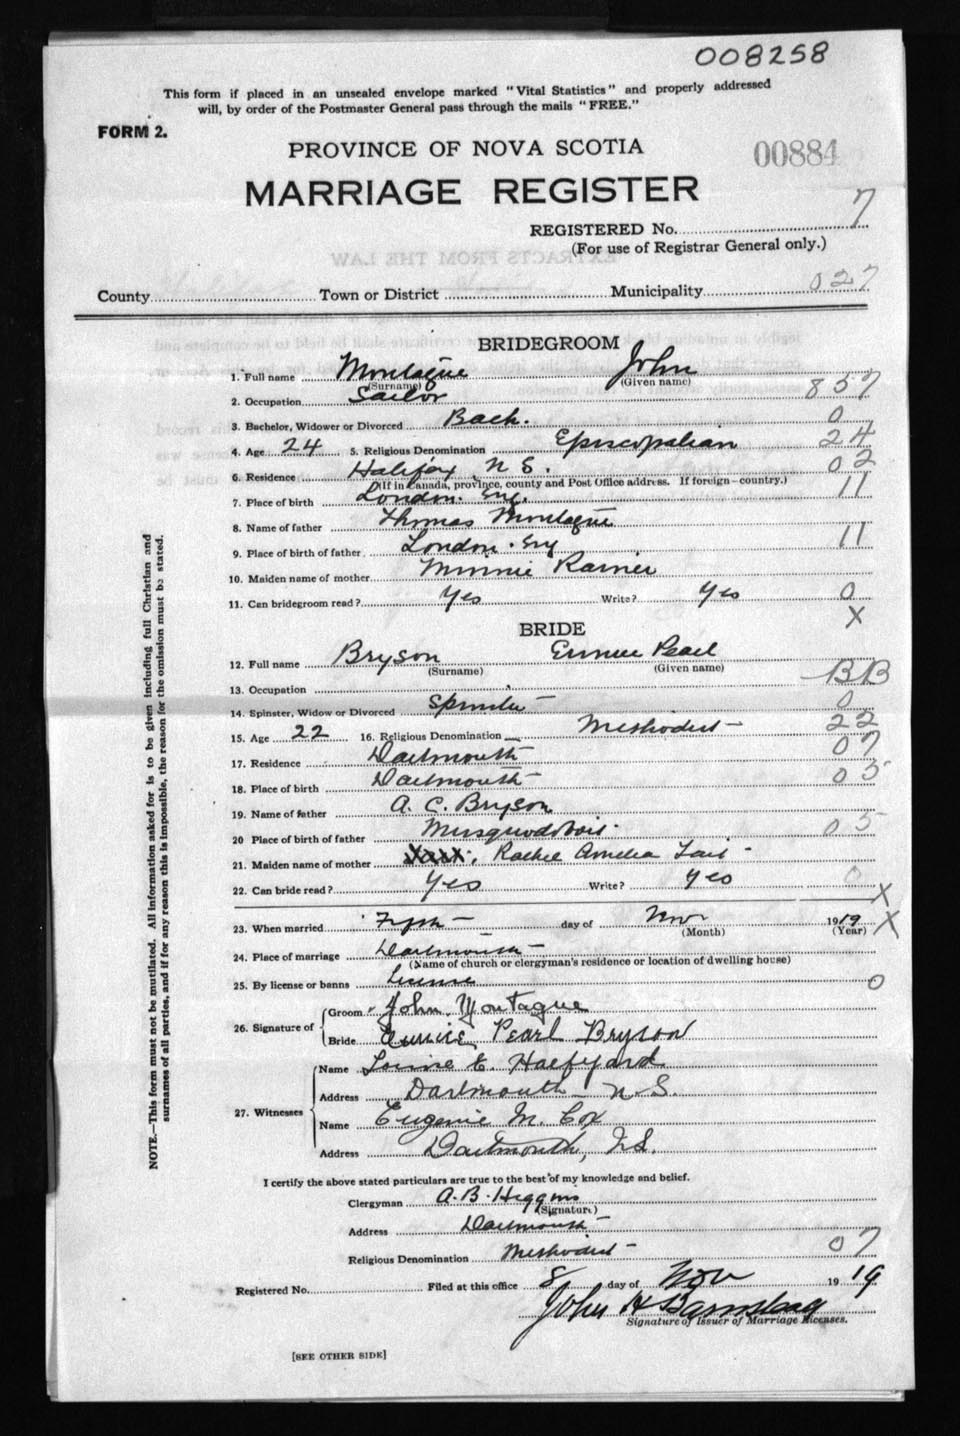 008258
This form if placed in an unsealed envelope marked "Vital Statistics" and properly addressed
will, by order of the Postmaster General pass through the mails "FREE."
FORM 2.
PROVINCE OF NOVA SCOTIA
00884
MARRIAGE REGISTER
REGISTERED No. 7
(For use of Registrar General only.)
EXTRACTS FROM THE LAW
County Halifax Town or District Municipality 027
BRIDEGROOM
1. Full name Montague John
(Surname) (Given name)
857
2. Occupation Sailor
3. Bachelor, Widower or Divorced Bach. 0
4. Age 24 5. Religious Denomination Episcopalian 24
6. Residence Halifax N S. 02
(If in Canada, province, county and Post Office address. If foreign—country.)
7. Place of birth London. Eng. 11
8. Name of father Thomas Montague
9. Place of birth of father London. Eng 11
10. Maiden name of mother Minnie Rainer
11. Can bridegroom read? Yes Write? Yes 0
X
BRIDE
12. Full name Bryson Eunice Pearl
(Surname) (Given name)
BB
13. Occupation
14. Spinster, Widow or Divorced Spinster 0
15. Age 22 16. Religious Denomination Methodist 22
17. Residence Dartmouth 07
18. Place of birth Dartmouth 05
19. Name of father A. C. Bryson
20 Place of birth of father Musquodoboit 05
21. Maiden name of mother Rachel Amelia Tait
22. Can bride read? Yes Write? yes 0
X
23. When married Fifth day of Nov 1919 X
(Month) (Year)
24. Place of marriage Dartmouth
(Name of church or clergyman's residence or location of dwelling house)
25. By license or banns License 0
26. Signature of Groom John Montague
Bride Eunice Pearl Bryson
27. Witnesses Name Louise E. Halfyard
Address Dartmouth N.S.
Name Eugenie M. Cox
Address Dartmouth, N.S.
I certify the above stated particulars are true to the best of my knowledge and belief.
Clergyman A. B. Higgins
(Signature)
Address Dartmouth
Religious Denomination Methodist 07
Registered No. Filed at this office 8 day of Nov 1919
John H
Signature of Issuer of Marriage Licenses.
[SEE OTHER SIDE]
NOTE.—This form must not be mutilated. All information asked for is to be given including full Christian and
surnames of all parties, and if for any reason this is impossible, the reason for the omission must be stated.